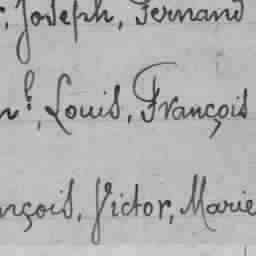 Joseph, Fernand
Louis, François
nçois, Victor, Marie